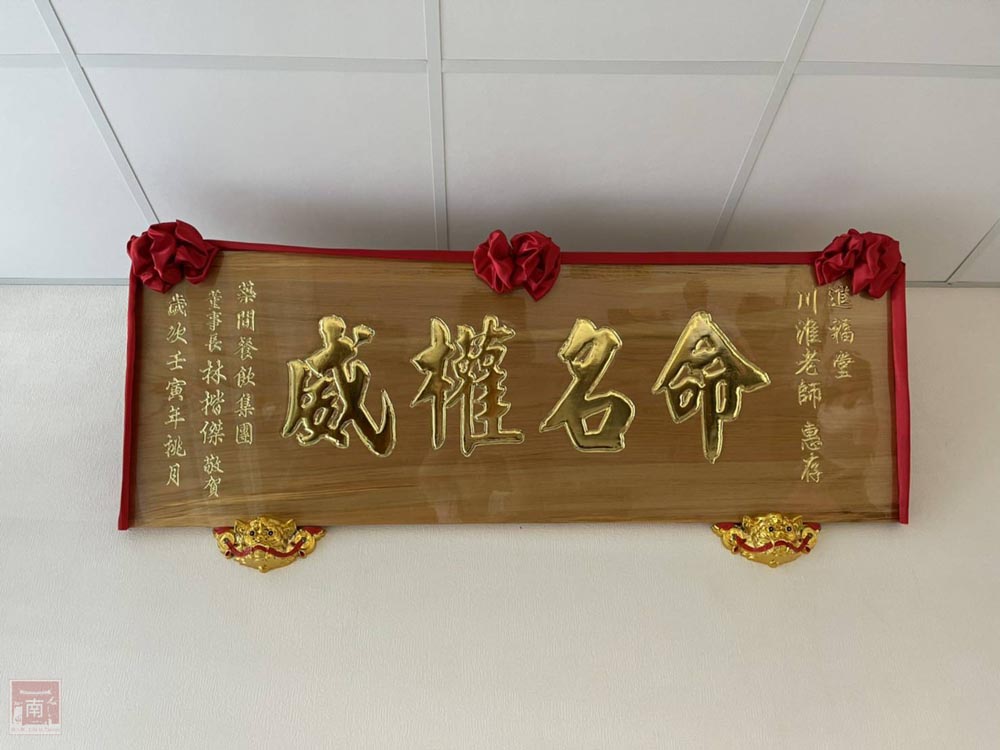 進福堂
川淮老師 惠存
命名權威
築間餐飲集團
董事長 林楷傑 敬賀
歲次壬寅年桃月
南